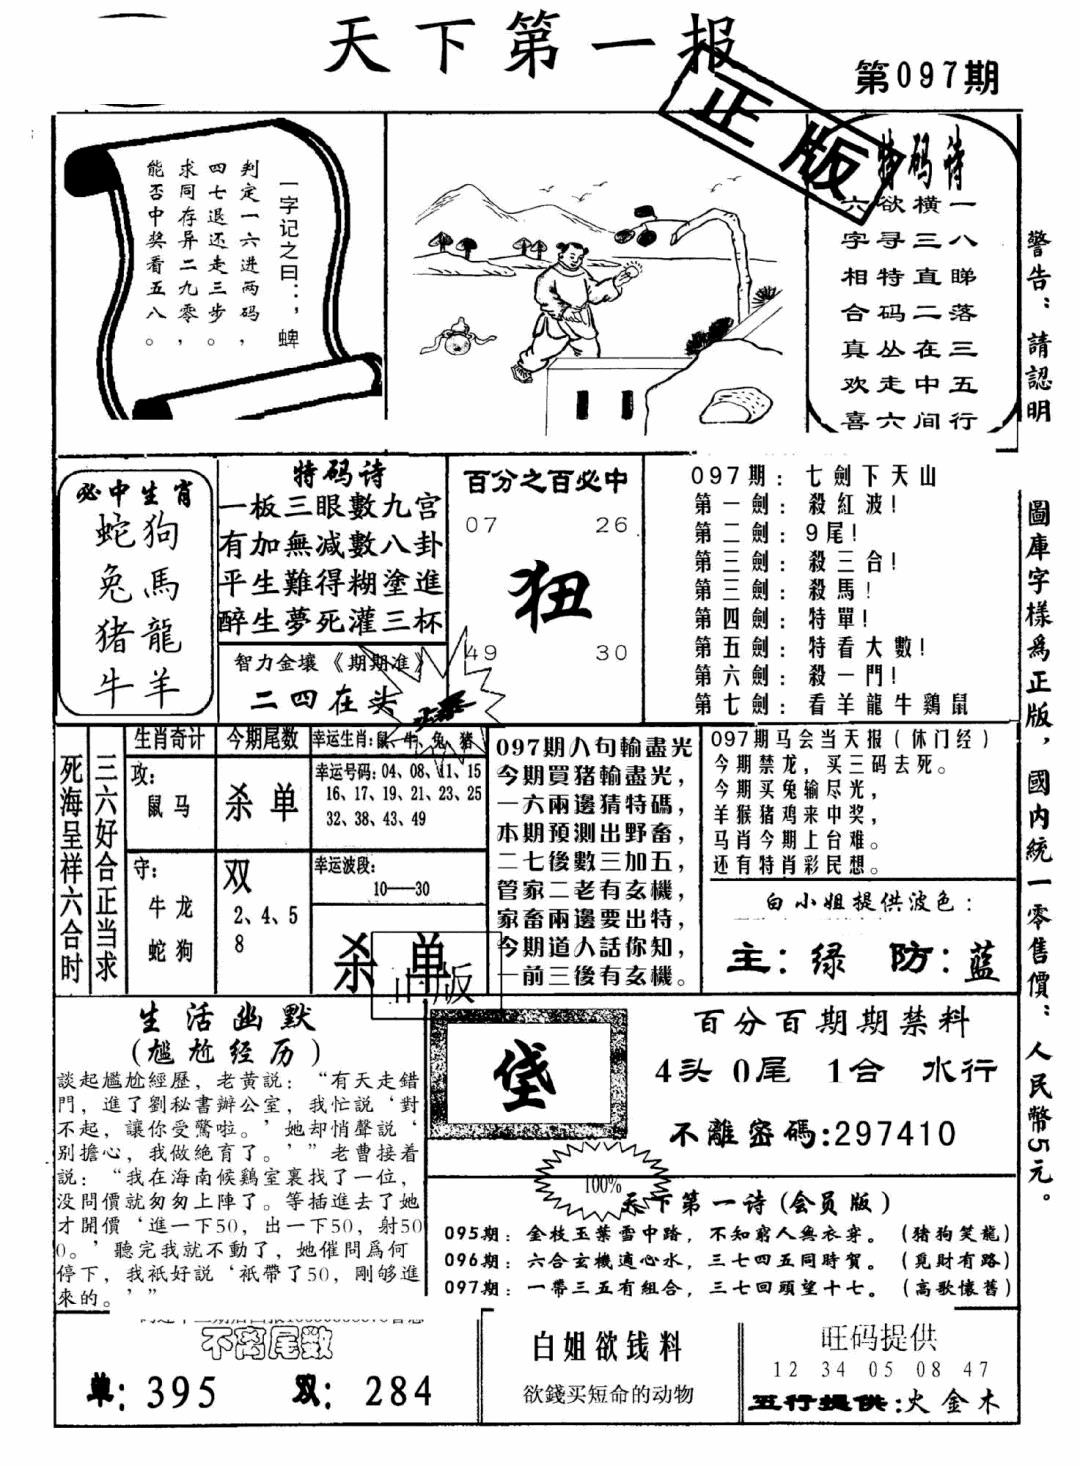 天下第一报
第097期
正版
一字记之曰：，蜱
判定一六进两码，
四七退还走三步。
求同存异二九零，
能否中奖看五八。
特码诗
一八睇落三五行
横三直二在中间
欲寻特码丛走六
六字相合真欢喜
警告：請認明
圖庫字樣為正版，國内統一零售價：人民幣5元。
必中生肖
蛇狗
兔馬
猪龍
牛羊
特码诗
一板三眼數九宫
有加無减數八卦
平生難得糊塗進
醉生夢死灌三杯
智力金壤《期期准》
二四在头
百分之百必中
07 26
狃
49 30
097期：七劍下天山
第一劍：殺紅波！
第二劍：9尾！
第三劍：殺三合！
第三劍：殺馬！
第四劍：特單！
第五劍：特看大數！
第六劍：殺一門！
第七劍：看羊龍牛鷄鼠
死海呈祥六合时
三六好合正当求
生肖奇计
攻：
鼠马
守：
牛龙
蛇狗
今期尾数
杀单
双
2、4、5
8
幸运生肖：鼠、牛、兔、猪
幸运号码：04、08、11、15
16、17、19、21、23、25
32、38、43、49
幸运波段：
10—30
杀单
正版
097期八句輸盡光
今期買猪輸盡光，
一六兩邊猜特碼，
本期預測出野畜，
二七後數三加五，
管家二老有玄機，
家畜兩邊要出特，
今期道人話你知，
一前三後有玄機。
097期马会当天报（休门经）
今期禁龙，买三码去死。
今期买兔输尽光，
羊猴猪鸡来中奖，
马肖今期上台难。
还有特肖彩民想。
白小姐提供波色：
主：绿 防：蓝
生活幽默
(尴尬经历)
談起尷尬經歷，老黄説：“有天走錯
門，進了劉秘書辦公室，我忙説‘對
不起，讓你受驚啦。’她却悄聲説‘
别擔心，我做絶育了。’”老曹接着
説：“我在海南候鷄室裏找了一位，
没問價就匆匆上陣了。等插進去了她
才開價‘進一下50，出一下50，射50
0。’聽完我就不動了，她催問爲何
停下，我衹好説‘衹帶了50，剛够進
來的。’”
垡
百分百期期禁料
4头 0尾 1合 水行
不離密碼:297410
100%
天下第一诗(会员版)
095期：金枝玉葉雪中踏，不知窮人無衣穿。（猪狗笑龍）
096期：六合玄機適心水，三七四五同時賀。（覓財有路）
097期：一帶三五有組合，三七回頭望十七。（高歌懷舊）
不离尾数
单：395 双：284
白姐欲钱料
欲錢买短命的动物
旺码提供
12 34 05 08 47
五行提供：火金木